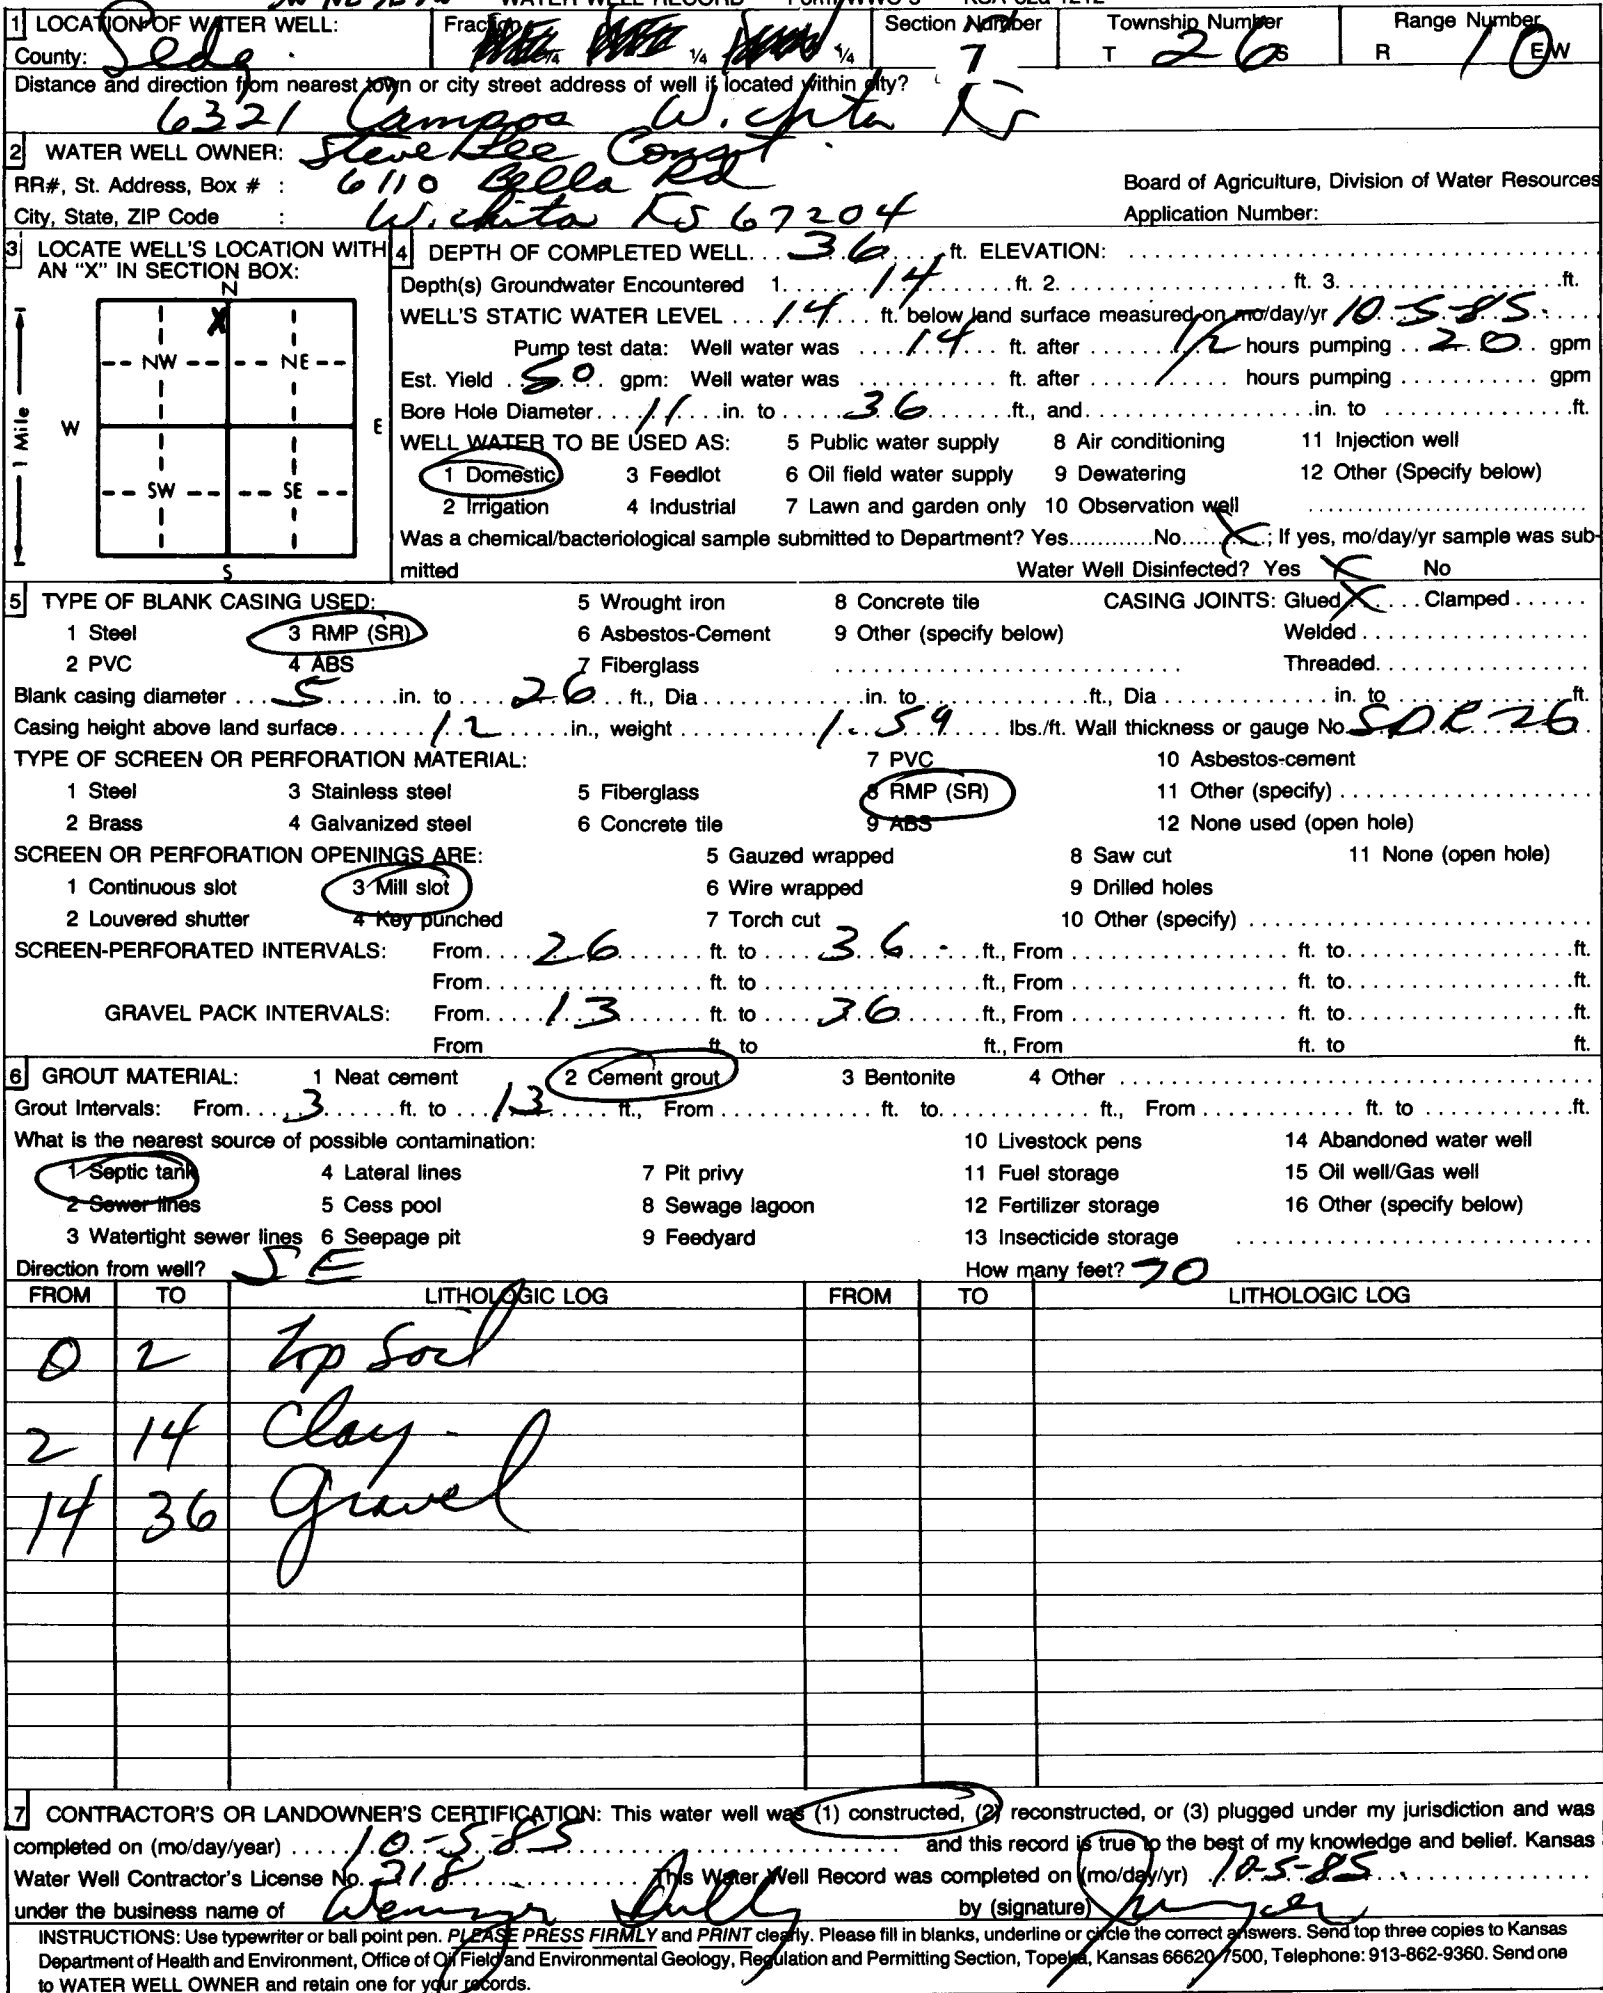 WATER WELL RECORD Form WWC-5 KSA 82a-1212
1 LOCATION OF WATER WELL: Fraction Section Number Township Number Range Number
County: Sedg. ¼ ¼ ¼ 7 T 26 S R 1 E/W
Distance and direction from nearest town or city street address of well if located within city?
6321 Campos Wichita Ks
2 WATER WELL OWNER: Steve Lee Const.
RR#, St. Address, Box # : 6110 Bella Rd Board of Agriculture, Division of Water Resources
City, State, ZIP Code : Wichita Ks 67204 Application Number:
3 LOCATE WELL'S LOCATION WITH AN "X" IN SECTION BOX:
N
X
NW NE
W E
SW SE
S
1 Mile
4 DEPTH OF COMPLETED WELL 36 ft. ELEVATION:
Depth(s) Groundwater Encountered 1. 14 ft. 2. ft. 3. ft.
WELL'S STATIC WATER LEVEL 14 ft. below land surface measured on mo/day/yr 10-5-85
Pump test data: Well water was 14 ft. after 1/2 hours pumping 20 gpm
Est. Yield 50 gpm: Well water was ft. after hours pumping gpm
Bore Hole Diameter 11 in. to 36 ft., and in. to ft.
WELL WATER TO BE USED AS: 5 Public water supply 8 Air conditioning 11 Injection well
1 Domestic 3 Feedlot 6 Oil field water supply 9 Dewatering 12 Other (Specify below)
2 Irrigation 4 Industrial 7 Lawn and garden only 10 Observation well
Was a chemical/bacteriological sample submitted to Department? Yes No X; If yes, mo/day/yr sample was sub-
mitted Water Well Disinfected? Yes X No
5 TYPE OF BLANK CASING USED: 5 Wrought iron 8 Concrete tile CASING JOINTS: Glued X Clamped
1 Steel 3 RMP (SR) 6 Asbestos-Cement 9 Other (specify below) Welded
2 PVC 4 ABS 7 Fiberglass Threaded
Blank casing diameter 5 in. to 26 ft., Dia in. to ft., Dia in. to ft.
Casing height above land surface 12 in., weight 1.59 lbs./ft. Wall thickness or gauge No. SDR 26
TYPE OF SCREEN OR PERFORATION MATERIAL: 7 PVC 10 Asbestos-cement
1 Steel 3 Stainless steel 5 Fiberglass 8 RMP (SR) 11 Other (specify)
2 Brass 4 Galvanized steel 6 Concrete tile 9 ABS 12 None used (open hole)
SCREEN OR PERFORATION OPENINGS ARE: 5 Gauzed wrapped 8 Saw cut 11 None (open hole)
1 Continuous slot 3 Mill slot 6 Wire wrapped 9 Drilled holes
2 Louvered shutter 4 Key punched 7 Torch cut 10 Other (specify)
SCREEN-PERFORATED INTERVALS: From 26 ft. to 36 ft., From ft. to ft.
From ft. to ft., From ft. to ft.
GRAVEL PACK INTERVALS: From 13 ft. to 36 ft., From ft. to ft.
From ft. to ft., From ft. to ft.
6 GROUT MATERIAL: 1 Neat cement 2 Cement grout 3 Bentonite 4 Other
Grout Intervals: From 3 ft. to 13 ft., From ft. to ft., From ft. to ft.
What is the nearest source of possible contamination: 10 Livestock pens 14 Abandoned water well
1 Septic tank 4 Lateral lines 7 Pit privy 11 Fuel storage 15 Oil well/Gas well
2 Sewer lines 5 Cess pool 8 Sewage lagoon 12 Fertilizer storage 16 Other (specify below)
3 Watertight sewer lines 6 Seepage pit 9 Feedyard 13 Insecticide storage
Direction from well? SE How many feet? 70
FROM TO LITHOLOGIC LOG FROM TO LITHOLOGIC LOG
0 2 Top Soil
2 14 Clay
14 36 Gravel
7 CONTRACTOR'S OR LANDOWNER'S CERTIFICATION: This water well was (1) constructed, (2) reconstructed, or (3) plugged under my jurisdiction and was
completed on (mo/day/year) 10-5-85 and this record is true to the best of my knowledge and belief. Kansas
Water Well Contractor's License No. 218 This Water Well Record was completed on (mo/day/yr) 10-5-85
under the business name of by (signature)
INSTRUCTIONS: Use typewriter or ball point pen. PLEASE PRESS FIRMLY and PRINT clearly. Please fill in blanks, underline or circle the correct answers. Send top three copies to Kansas
Department of Health and Environment, Office of Oil Field and Environmental Geology, Regulation and Permitting Section, Topeka, Kansas 66620-7500, Telephone: 913-862-9360. Send one
to WATER WELL OWNER and retain one for your records.